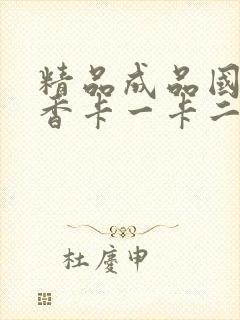 精品成品國
香卡一卡二
杜慶申